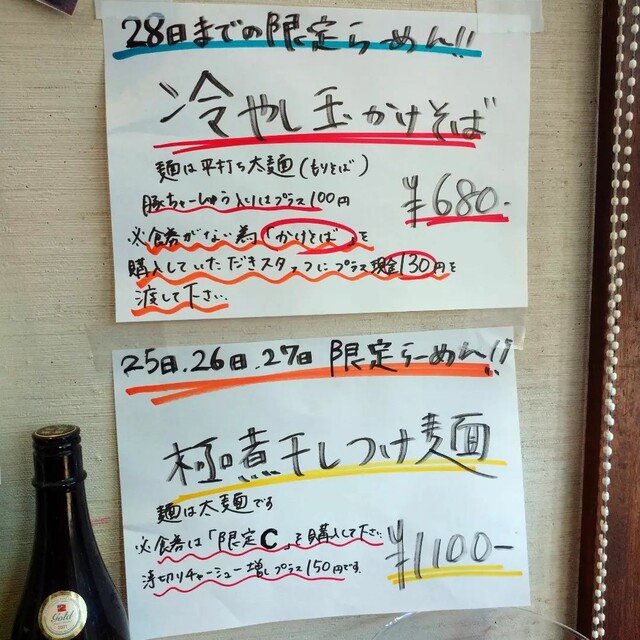 28日までの限定らーめん!!
冷やし玉かけそば
麺は平打ち太麺(もりそば)
豚ちゃーしゅう入りはプラス100円
¥680-
※食券がない為「かけそば」を
購入していただきスタッフにプラス現金130円を
渡して下さい
25日、26日、27日 限定らーめん!!
極煮干しつけ麺
麺は太麺です
※食券は「限定C」を購入して下さい
薄切りチャーシュー増しプラス150円です
¥1100-
Gold